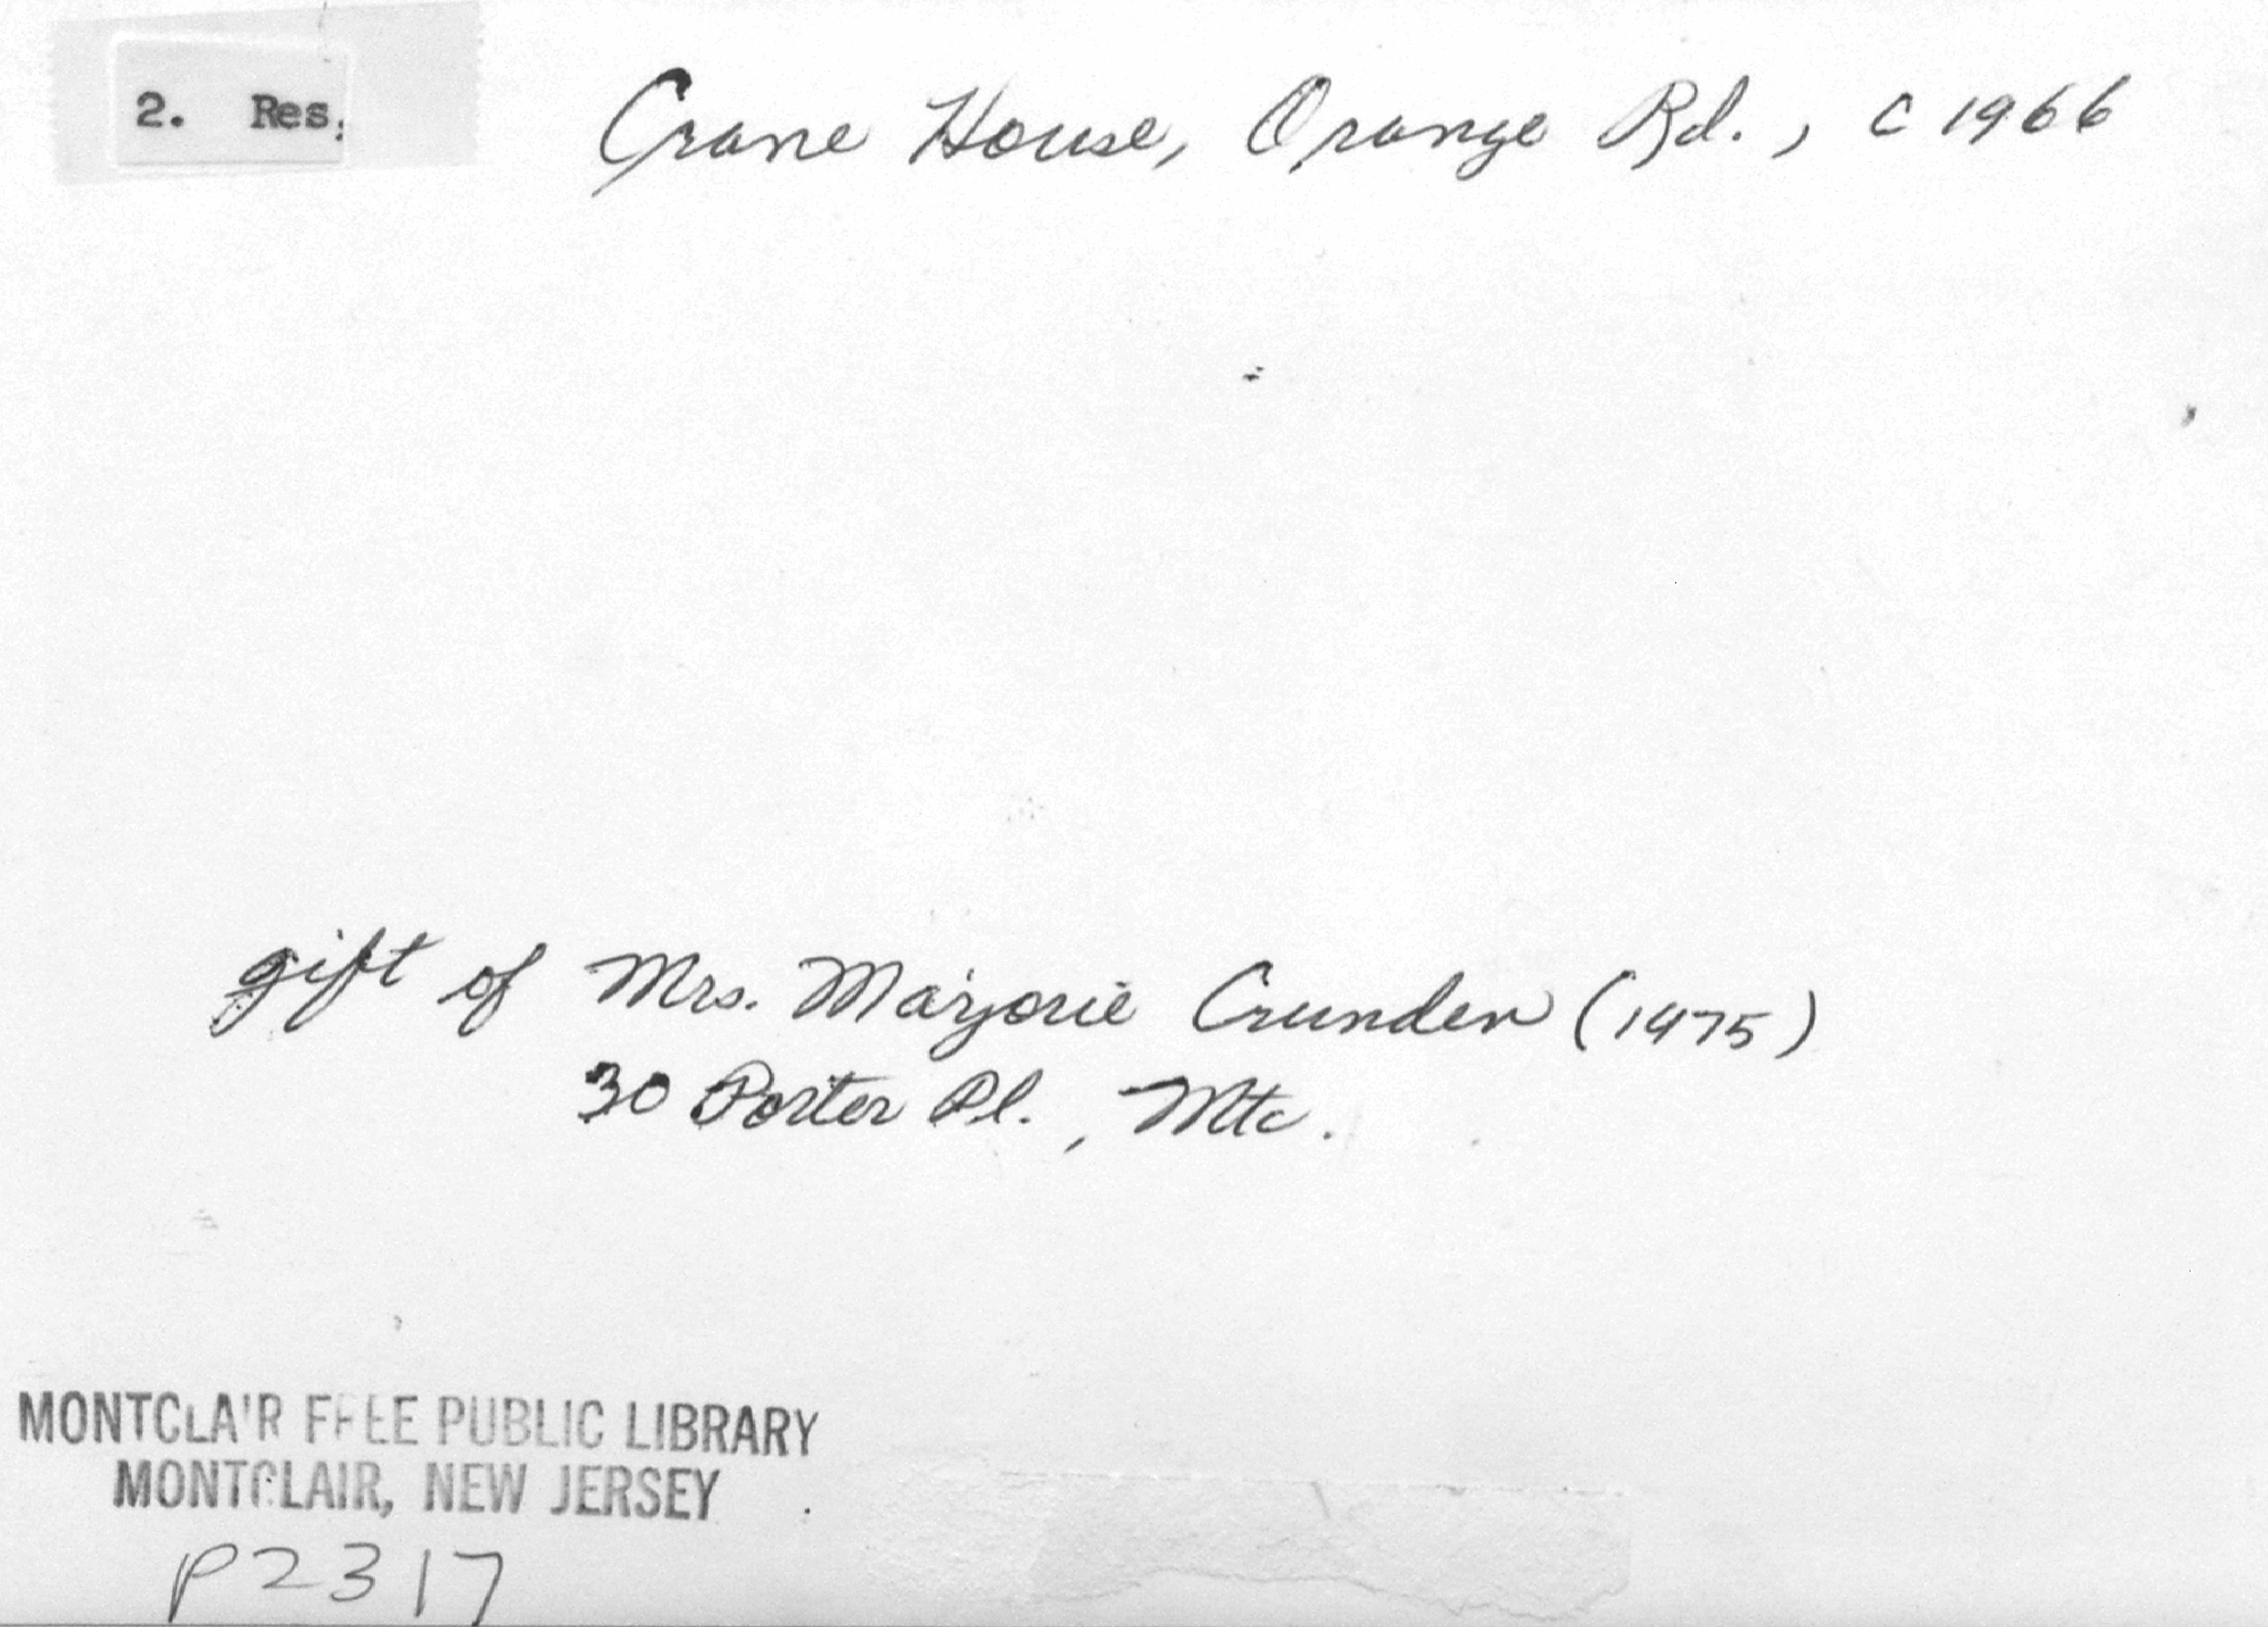 2. Res.
Crane House, Orange Rd., c 1966
gift of Mrs. Marjorie Crunden (1975)
30 Porter Pl., Mtc.
MONTCLAIR FREE PUBLIC LIBRARY
MONTCLAIR, NEW JERSEY
P2317